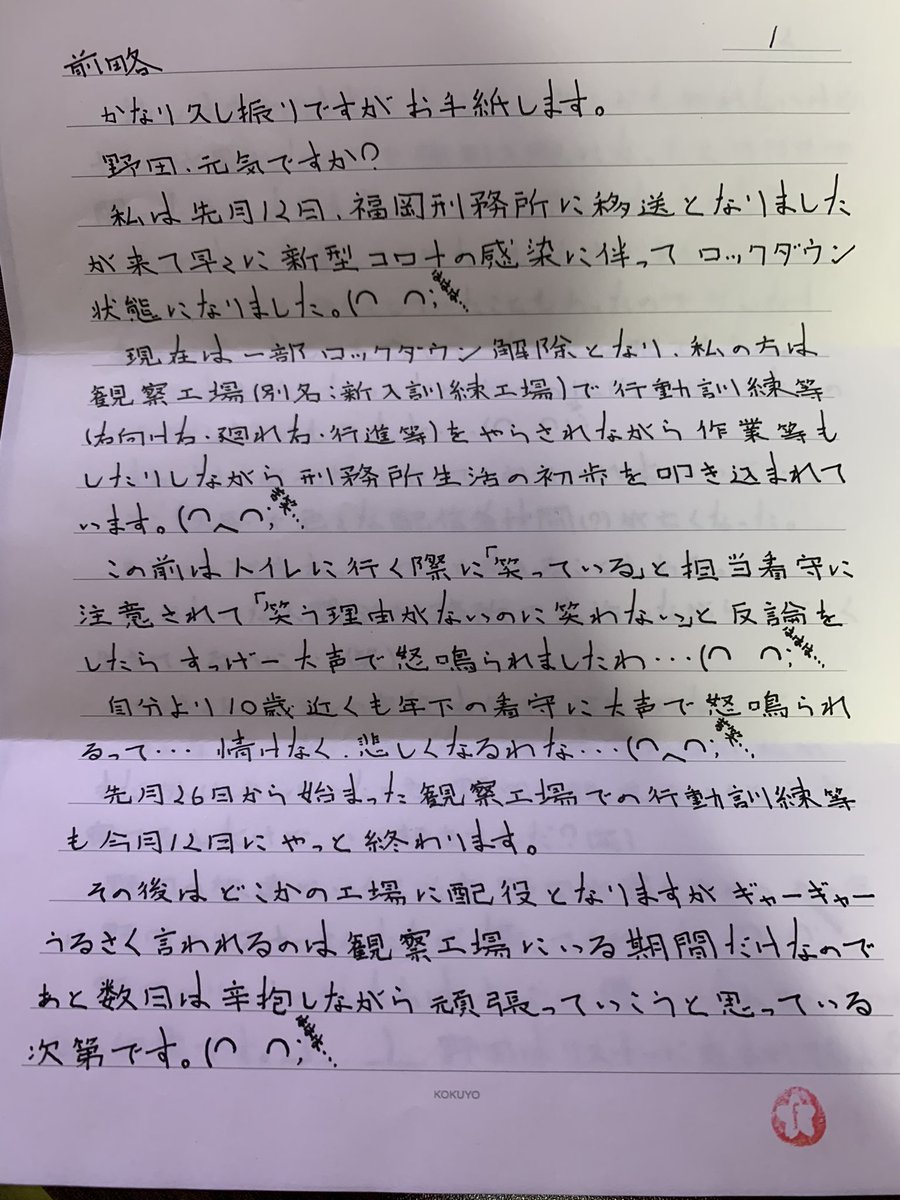 1
前略
かなり久し振りですがお手紙します。
野田、元気ですか?
私は先月12日、福岡刑務所に移送となりました
が来て早々に新型コロナの感染に伴ってロックダウン
状態になりました。(⌒ ⌒;
現在は一部ロックダウン解除となり、私の方は
観察工場(別名:新入訓練工場)で行動訓練等
(右向け右・廻れ右・行進等)をやらされながら作業等も
したりしながら刑務所生活の初歩を叩き込まれて
います。(⌒_⌒; 苦笑…
この前はトイレに行く際に「笑っている」と担当看守に
注意されて「笑う理由がないのに笑わないっ」と反論を
したらすっげー大声で怒鳴られましたわ…(⌒ ⌒; ははは…
自分より10歳近くも年下の看守に大声で怒鳴られ
るって…情けなく、悲しくなるわな…(⌒_⌒; 苦笑…
先月26日から始まった観察工場での行動訓練等
も今月12日にやっと終わります。
その後はどこかの工場に配役となりますがギャーギャー
うるさく言われるのは観察工場にいる期間だけなので
あと数日は辛抱しながら頑張っていこうと思っている
次第です。(⌒ ⌒;
KOKUYO